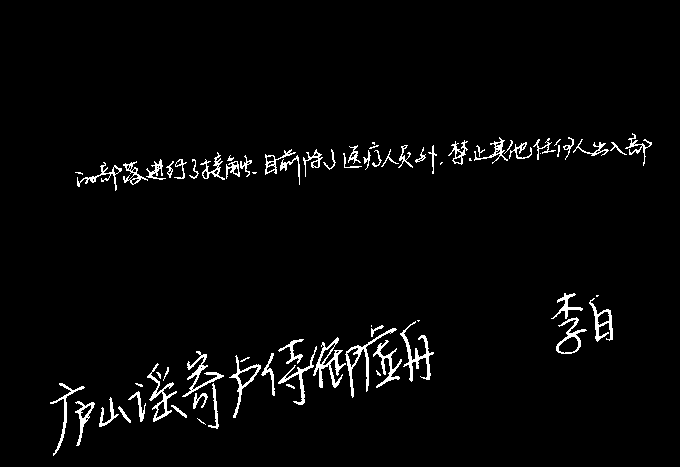 的部落进行了接触.目前除了医疗人员外,禁止其他任何人出入部
庐山谣寄卢侍御虚舟 李白